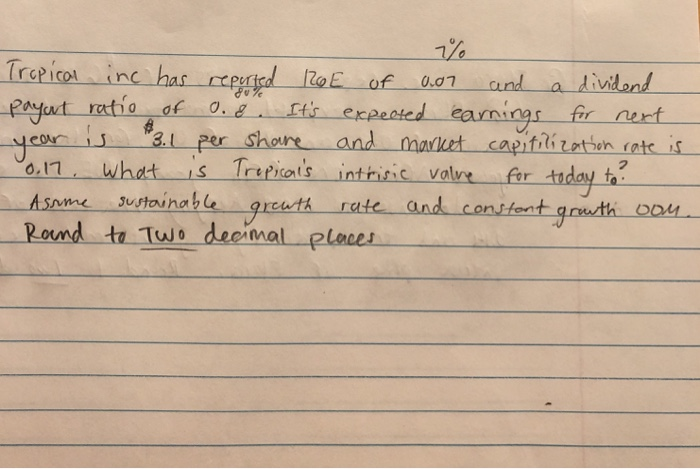 7%
Tropical inc has reported ROE of 0.07 and a dividend
80%
payout ratio of 0.8. It's expected earnings for next
year is $3.1 per share and market capitilization rate is
0.17. What is Tropical's intrisic value for today to?
Assume sustainable growth rate and constant growth DDM.
Round to Two decimal places